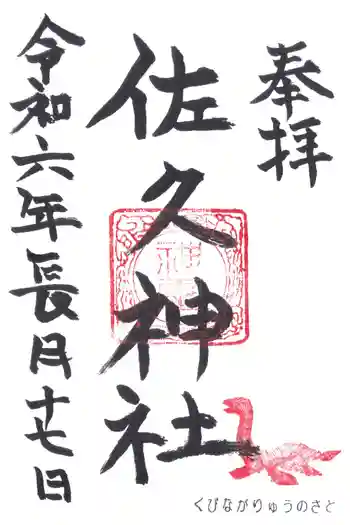 奉拝
佐久神社
令和六年長月十七日
くびながりゅうのさと